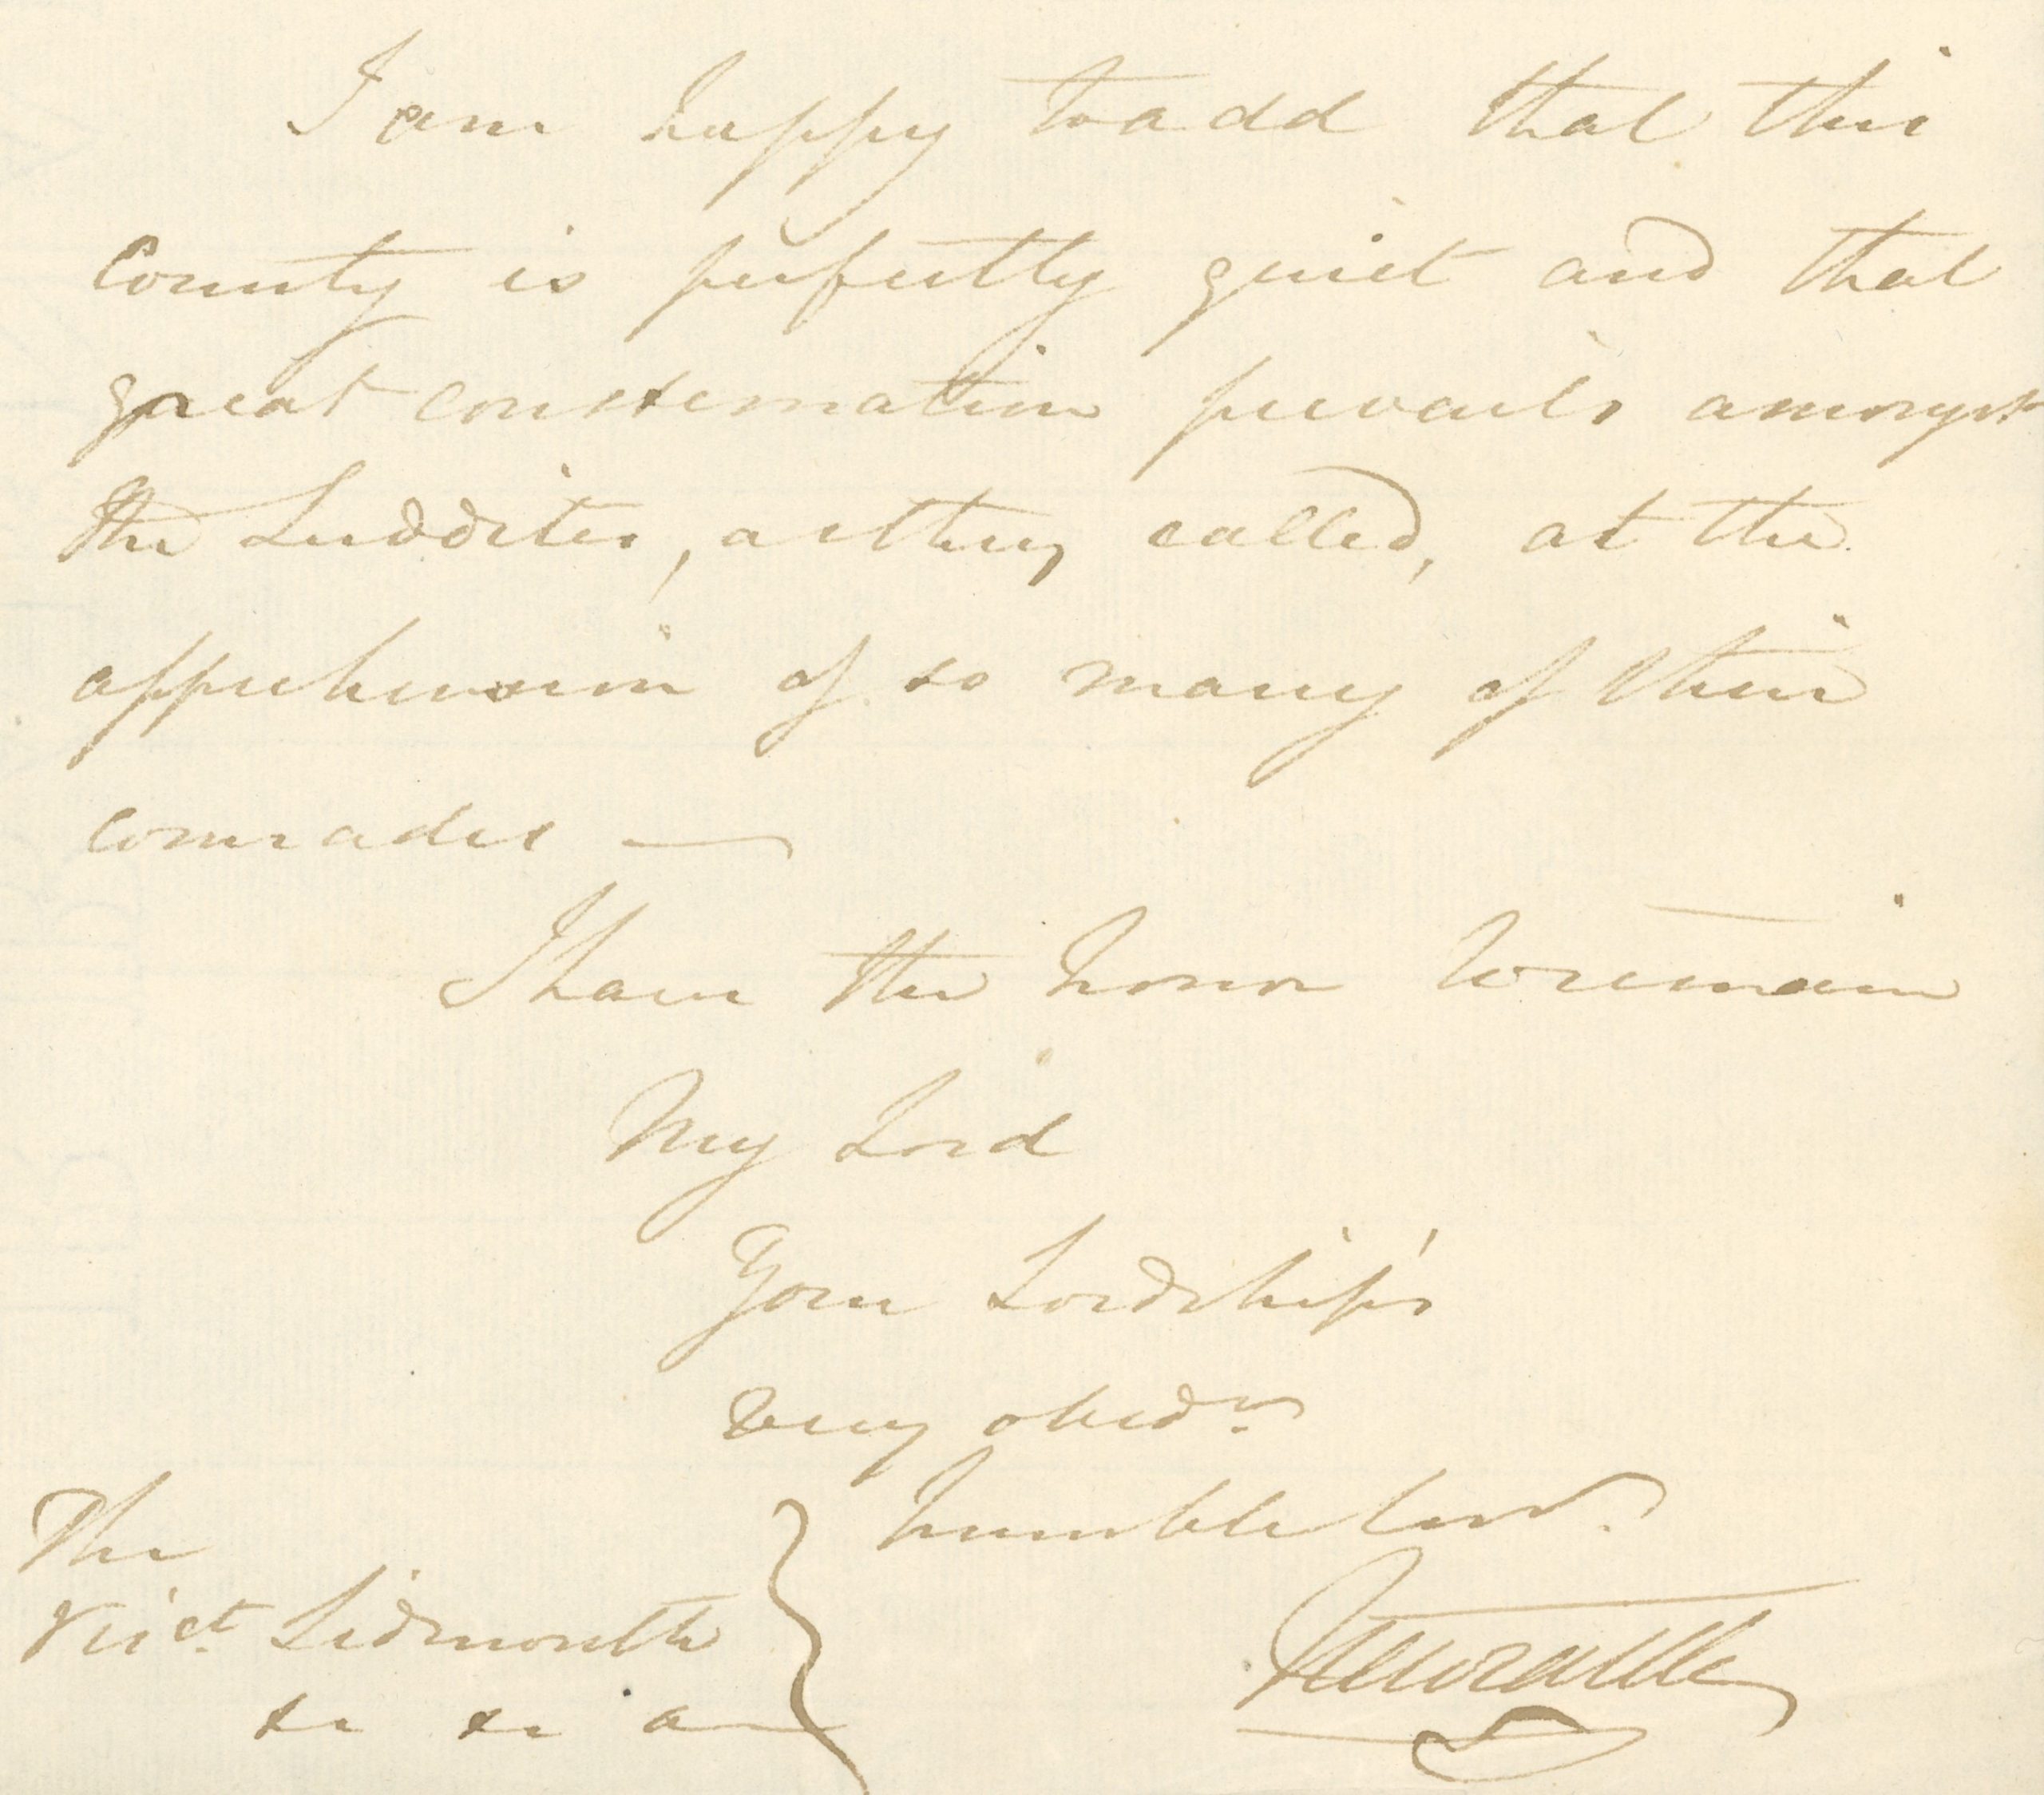 I am happy to add that this
County is perfectly quiet and that
great consternation prevails amongst
the Luddites, as they called, at the
apprehension of so many of their
comrades —
I have the honor to remain
My Lord
Your Lordship's
very obedt.
humble servt.
The
Visct. Sidmouth
&c &c &c
Newcastle